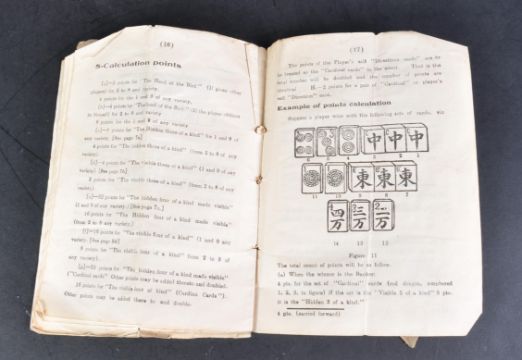 (16)
5-Calculation points
points for "The Hand of the Bird." (If given other
players) for 2 to 8 and variety.
4 points for the 1 and 9 of any variety.
himself for 2 to 8 and variety
points for the 1 and 9 of any variety
points for "The Hidden three of a kind" for 1 and 9 of
any variety. [See page 7a]
4 points for "The Hidden three of a kind" (from 2 to 8 of any
variety.
4 points for "The visible three of a kind" (1 and 9 of any
variety.) [See page 7b]
2 points for "The visible three of a kind" (from 2 to 8 of any
variety.
points for "The hidden four of a kind made visible"
(1 and 9 of any variety.) [See page 7c.]
16 points for "The Hidden four of a kind made visible"
(from 2 to 8 any variety.)
points for "The visible four of a kind" (1 and 9 any
variety. [See page 8d]
8 points for "The visible four of a kind" from 2 to 8 of
any variety.
points for "The hidden four of a kind made visible"
("Cardinal cards" Other points may be added thereto and doubled.
16 points for "The visible four of kind" (Cardinal Cards ").
Other points may be added there to and double.
(17)
The points of the Player's self "Directions cards" are to
be treated as the "Cardinal cards" in the game. That is the
total number will be doubled and the number of points are
identical H.—2 points for a pair of "Cardinal" or player's
self "Direction" card.
Example of points calculation
Suppose a player wins with the following sets of cards, viz
中 中 中
6 5 4 3 2 1
東 東 東
11 10 9 8 7
四万 三万 二万
14 13 12
Figure 11
The total count of points will be as follow.
(a) When the winner is the Banker.
4 pts. for the set of "Cardinal" cards (red dragon, numbered
1, 2, 3, in figure) if the set is the "Visible 3 of a kind" 8 pts.
it is the "Hidden 3 of a kind."
4 pts. (carried forward)